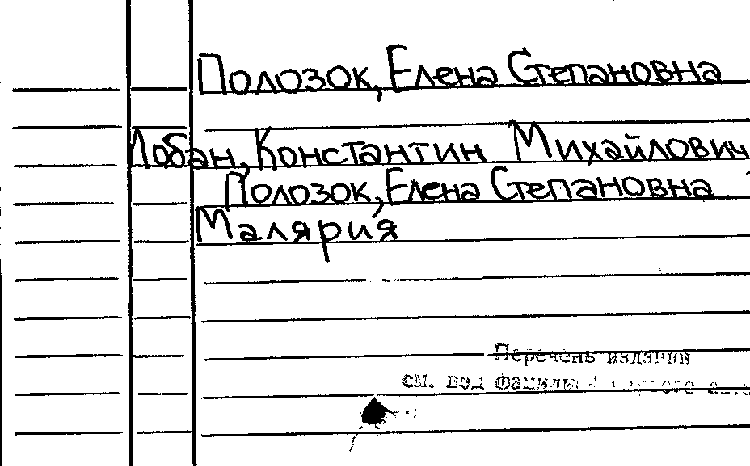 Полозок, Елена Степановна
Лобан, Константин Михайлович
Полозок, Елена Степановна
Малярия
Перечень издания
см. под фамилией